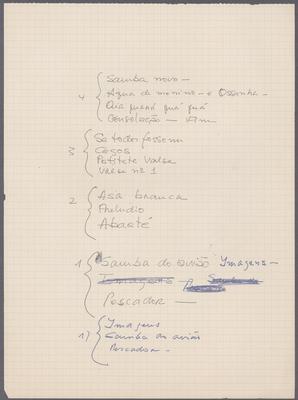 4 { Samba novo -
Agua de menino - e Ossanha -
Qua quará quá quá
Consolação - Am
3 { Se todos fossem
Cegos
Petitete Valse
Valse nº 1
2 { Asa branca
Preludio
Abaeté
1 { Samba do avião Imagens -
Imagens - Samba do
Pescador -
1) { Imagens
Samba do avião
Pescador -